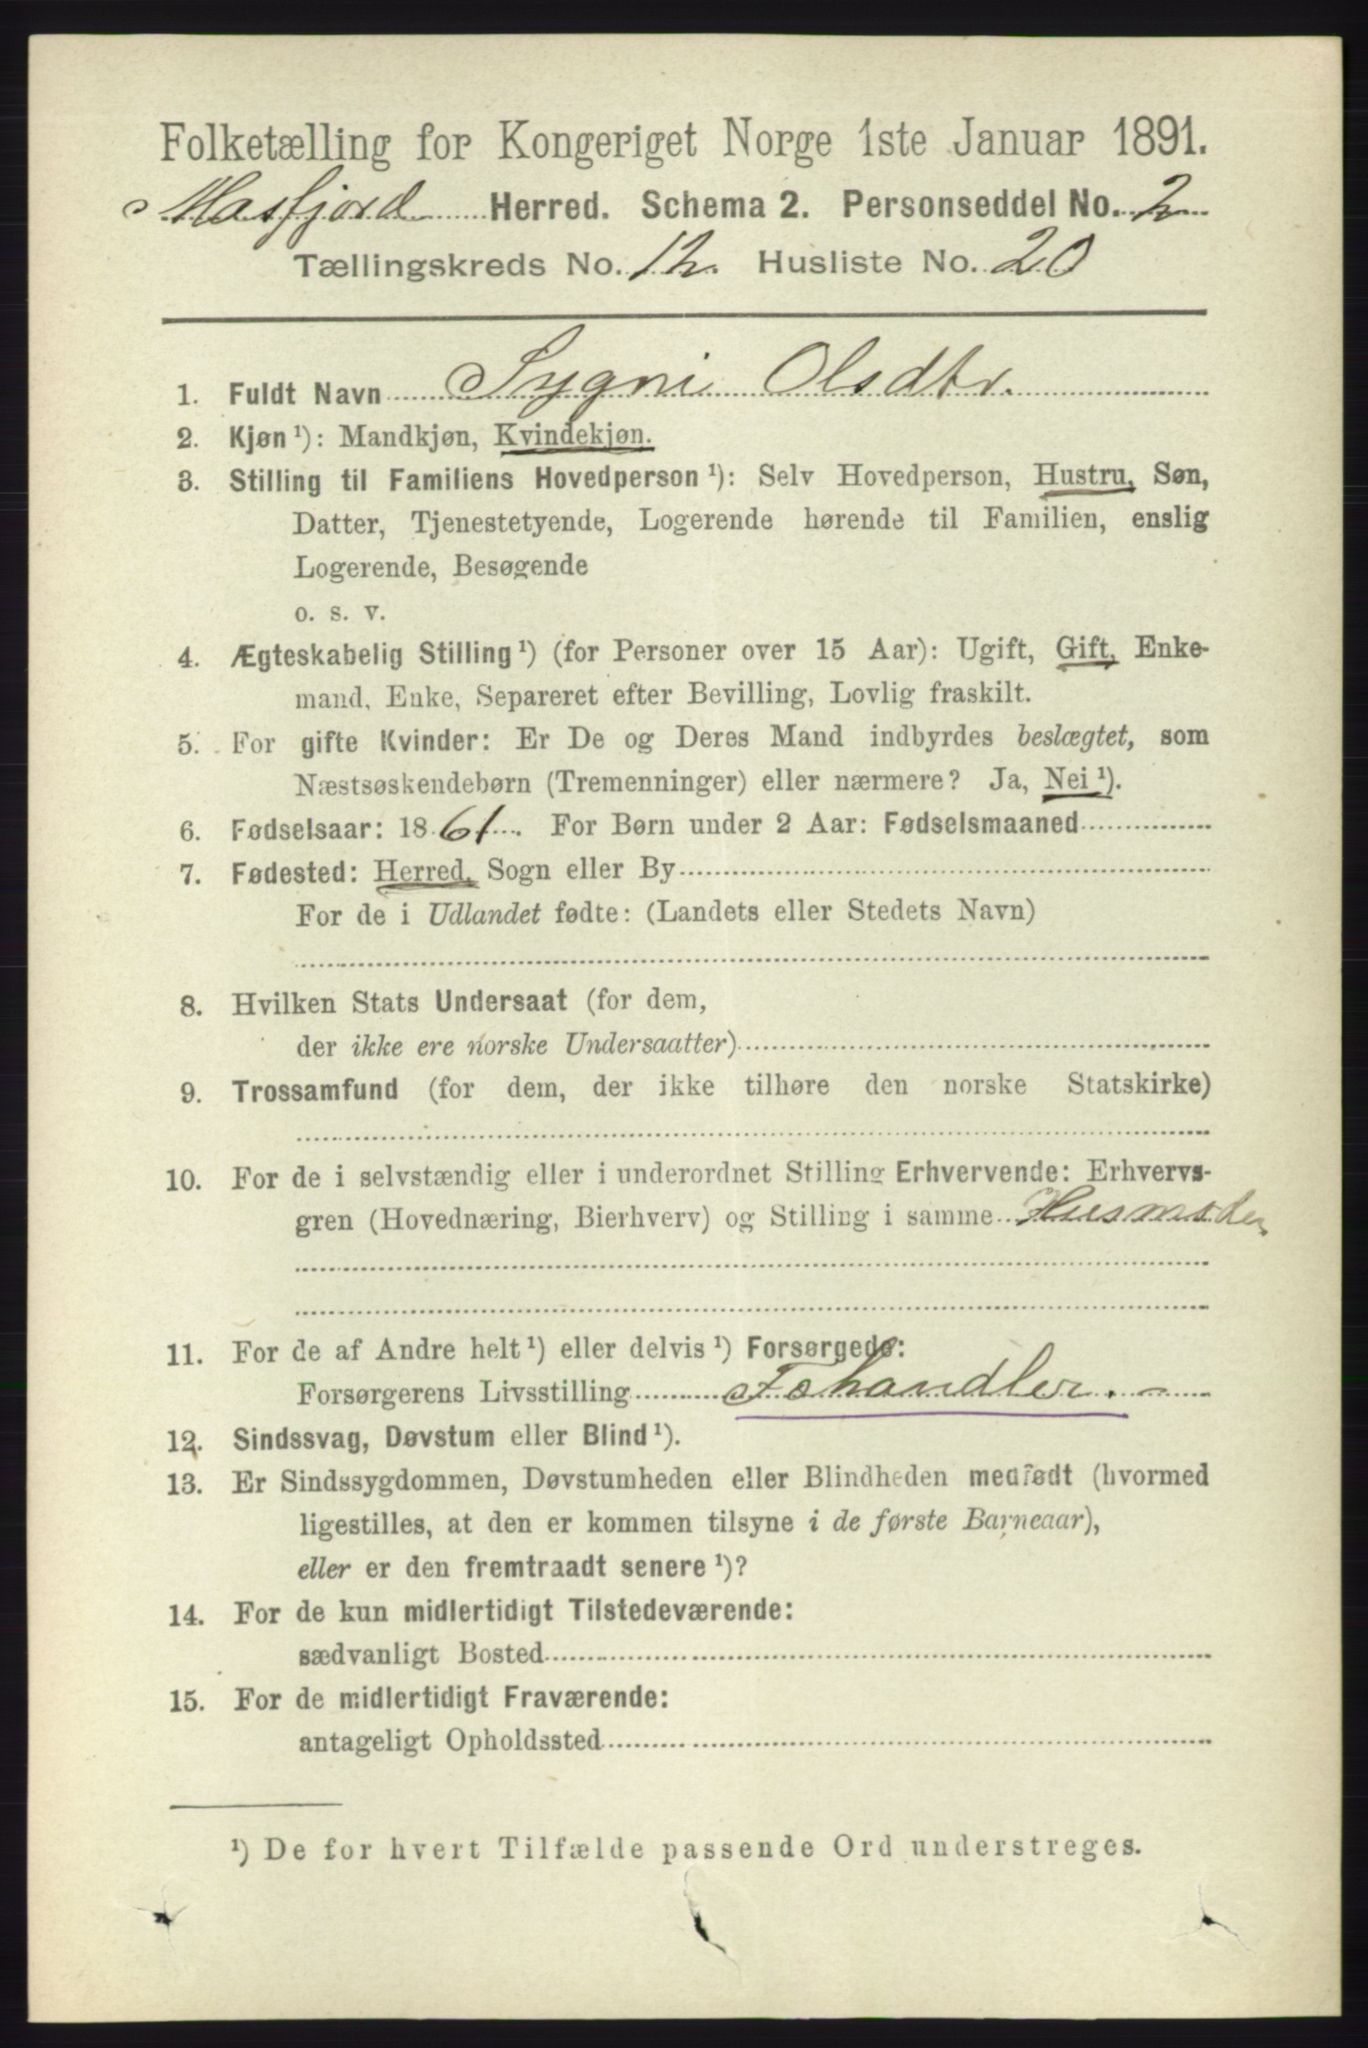 Folketælling for Kongeriget Norge 1ste Januar 1891.
Masfjord Herred. Schema 2. Personseddel No. 2
Tællingskreds No. 12. Husliste No. 20
1. Fuldt Navn Sygni Olsdtr.
2. Kjøn ¹): Mandkjøn, Kvindekjøn.
3. Stilling til Familiens Hovedperson ¹): Selv Hovedperson, Hustru, Søn,
Datter, Tjenestetyende, Logerende hørende til Familien, enslig
Logerende, Besøgende
o. s. v.
4. Ægteskabelig Stilling ¹) (for Personer over 15 Aar): Ugift, Gift, Enke-
mand, Enke, Separeret efter Bevilling, Lovlig fraskilt.
5. For gifte Kvinder: Er De og Deres Mand indbyrdes beslægtet, som
Næstsøskendebørn (Tremenninger) eller nærmere? Ja, Nei ¹).
6. Fødselsaar: 1861. For Børn under 2 Aar: Fødselsmaaned
7. Fødested: Herred, Sogn eller By
For de i Udlandet fødte: (Landets eller Stedets Navn)
8. Hvilken Stats Undersaat (for dem,
der ikke ere norske Undersaatter)
9. Trossamfund (for dem, der ikke tilhøre den norske Statskirke)
10. For de i selvstændig eller i underordnet Stilling Erhvervende: Erhvervs-
gren (Hovednæring, Bierhverv) og Stilling i samme Husmoder
11. For de af Andre helt ¹) eller delvis ¹) Forsørgede:
Forsørgerens Livsstilling Fehandler.
12. Sindssvag, Døvstum eller Blind ¹).
13. Er Sindssygdommen, Døvstumheden eller Blindheden medfødt (hvormed
ligestilles, at den er kommen tilsyne i de første Barneaar),
eller er den fremtraadt senere ¹)?
14. For de kun midlertidigt Tilstedeværende:
sædvanligt Bosted
15. For de midlertidigt Fraværende:
antageligt Opholdssted
¹) De for hvert Tilfælde passende Ord understreges.